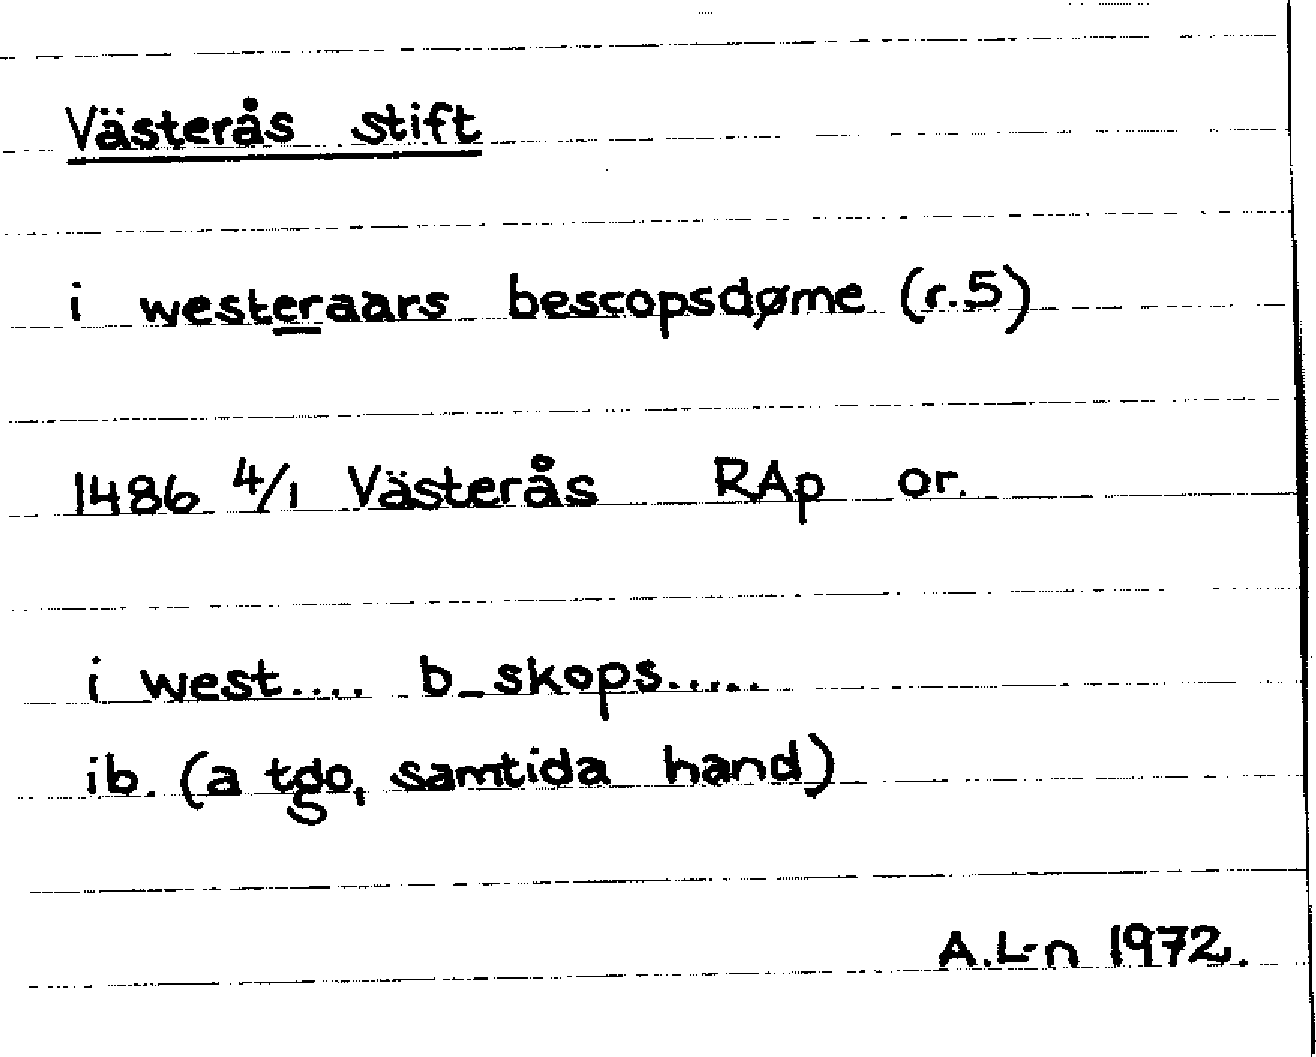 Västerås stift
i westeraars bescopsdøme (r.5)
1486 4/1 Västerås RAp or.
i west.... b_skops.....
ib. (a tgo, samtida hand)
A.L-n 1972.